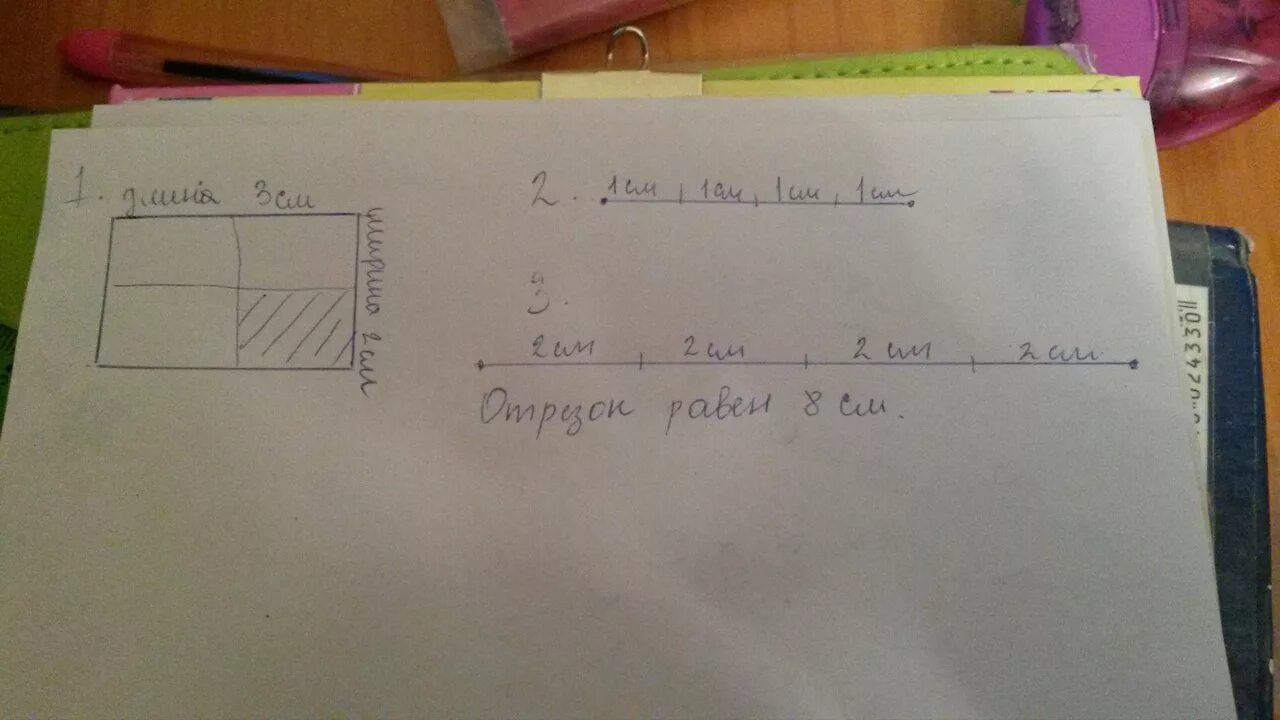 1. длина 3см
ширина 2см
2. 1см 1см 1см 1см
3.
2см 2см 2см 2см
Отрезок равен 8 см.